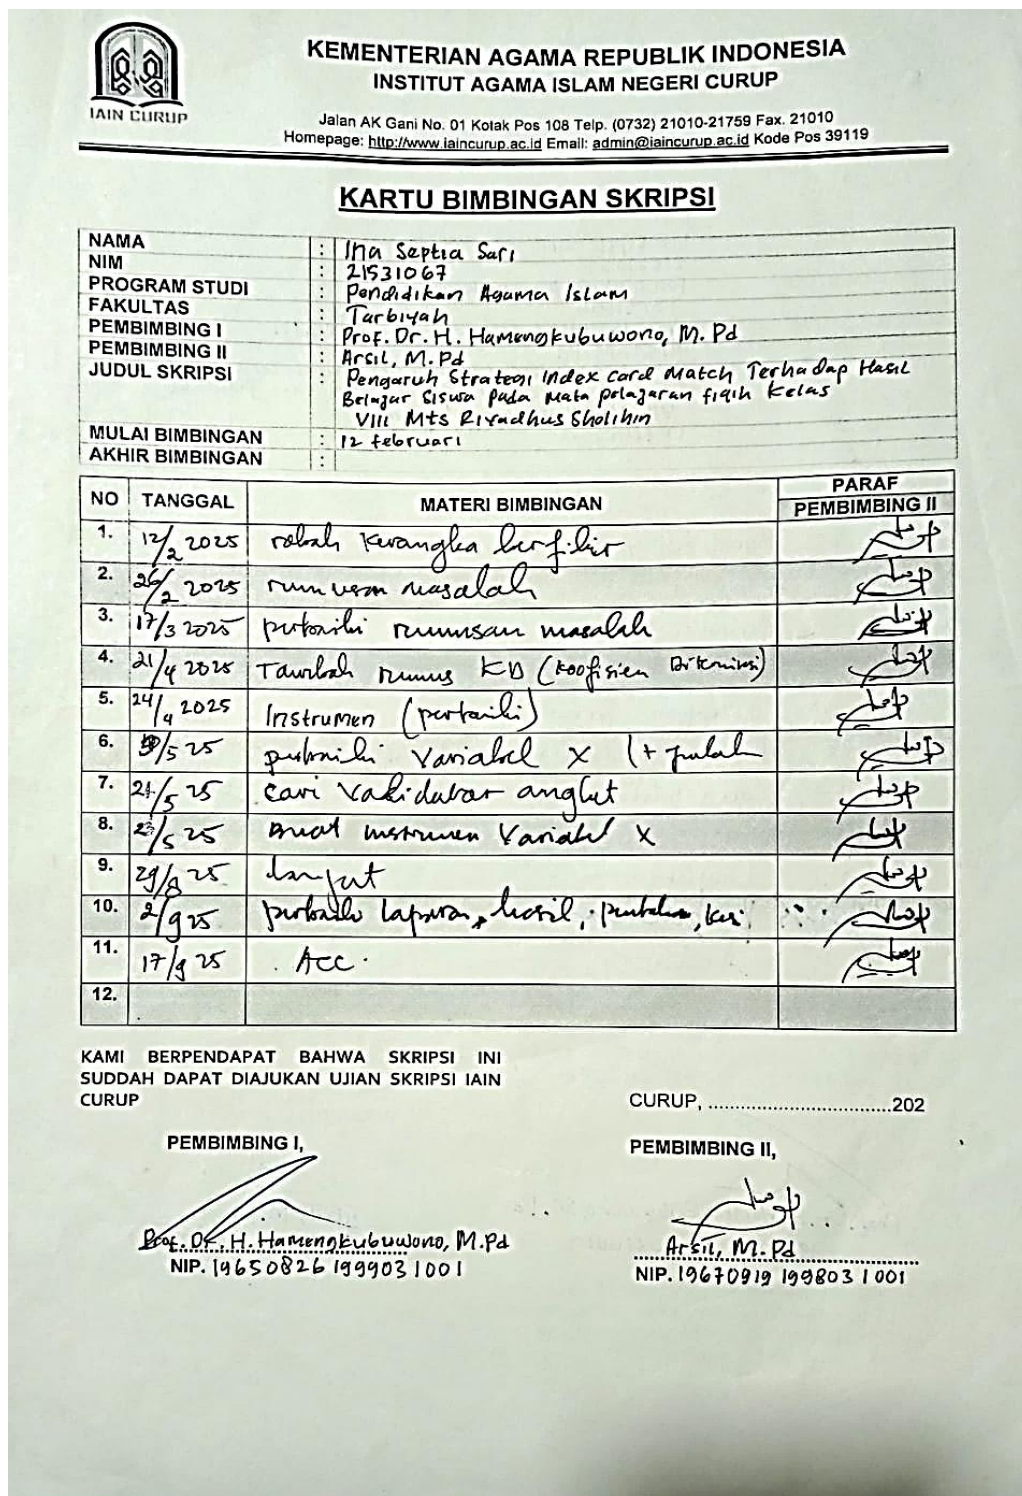 IAIN CURUP
KEMENTERIAN AGAMA REPUBLIK INDONESIA
INSTITUT AGAMA ISLAM NEGERI CURUP
Jalan AK Gani No. 01 Kotak Pos 108 Telp. (0732) 21010-21759 Fax. 21010
Homepage: http://www.iaincurup.ac.id Email: admin@iaincurup.ac.id Kode Pos 39119
KARTU BIMBINGAN SKRIPSI
NAMA : Ina Septia Sari
NIM : 21531067
PROGRAM STUDI : Pendidikan Agama Islam
FAKULTAS : Tarbiyah
PEMBIMBING I : Prof. Dr. H. Hamengkubuwono, M. Pd
PEMBIMBING II : Arsil, M. Pd
JUDUL SKRIPSI : Pengaruh Strategi Index Card Match Terhadap Hasil
Belajar Siswa Pada Mata pelajaran fiqih Kelas
VIII Mts Riyadhus Sholihin
MULAI BIMBINGAN : 12 februari
AKHIR BIMBINGAN :
NO TANGGAL MATERI BIMBINGAN PARAF
PEMBIMBING II
1. 12/2 2025 kerangka berfikir
2. 26/2 2025 masalah
3. 17/3 2025 rumusan masalah
4. 21/4 2025 rumus KD (Koofisien
5. 24/4 2025 Instrumen
6. /5 25 Variabel X
7. 21/5 25 cari angket
8. /5 25 Buat instrumen Variabel X
9. 29/8 25 lanjut
10. 2/9 25 hasil,
11. 17/9 25 ACC.
12.
KAMI BERPENDAPAT BAHWA SKRIPSI INI
SUDDAH DAPAT DIAJUKAN UJIAN SKRIPSI IAIN
CURUP
CURUP, ................................202
PEMBIMBING I,
PEMBIMBING II,
Prof. Dr. H. Hamengkubuwono, M.Pd
NIP. 19650826 199903 1 001
Arsil, M. Pd
NIP. 19670919 199803 1 001